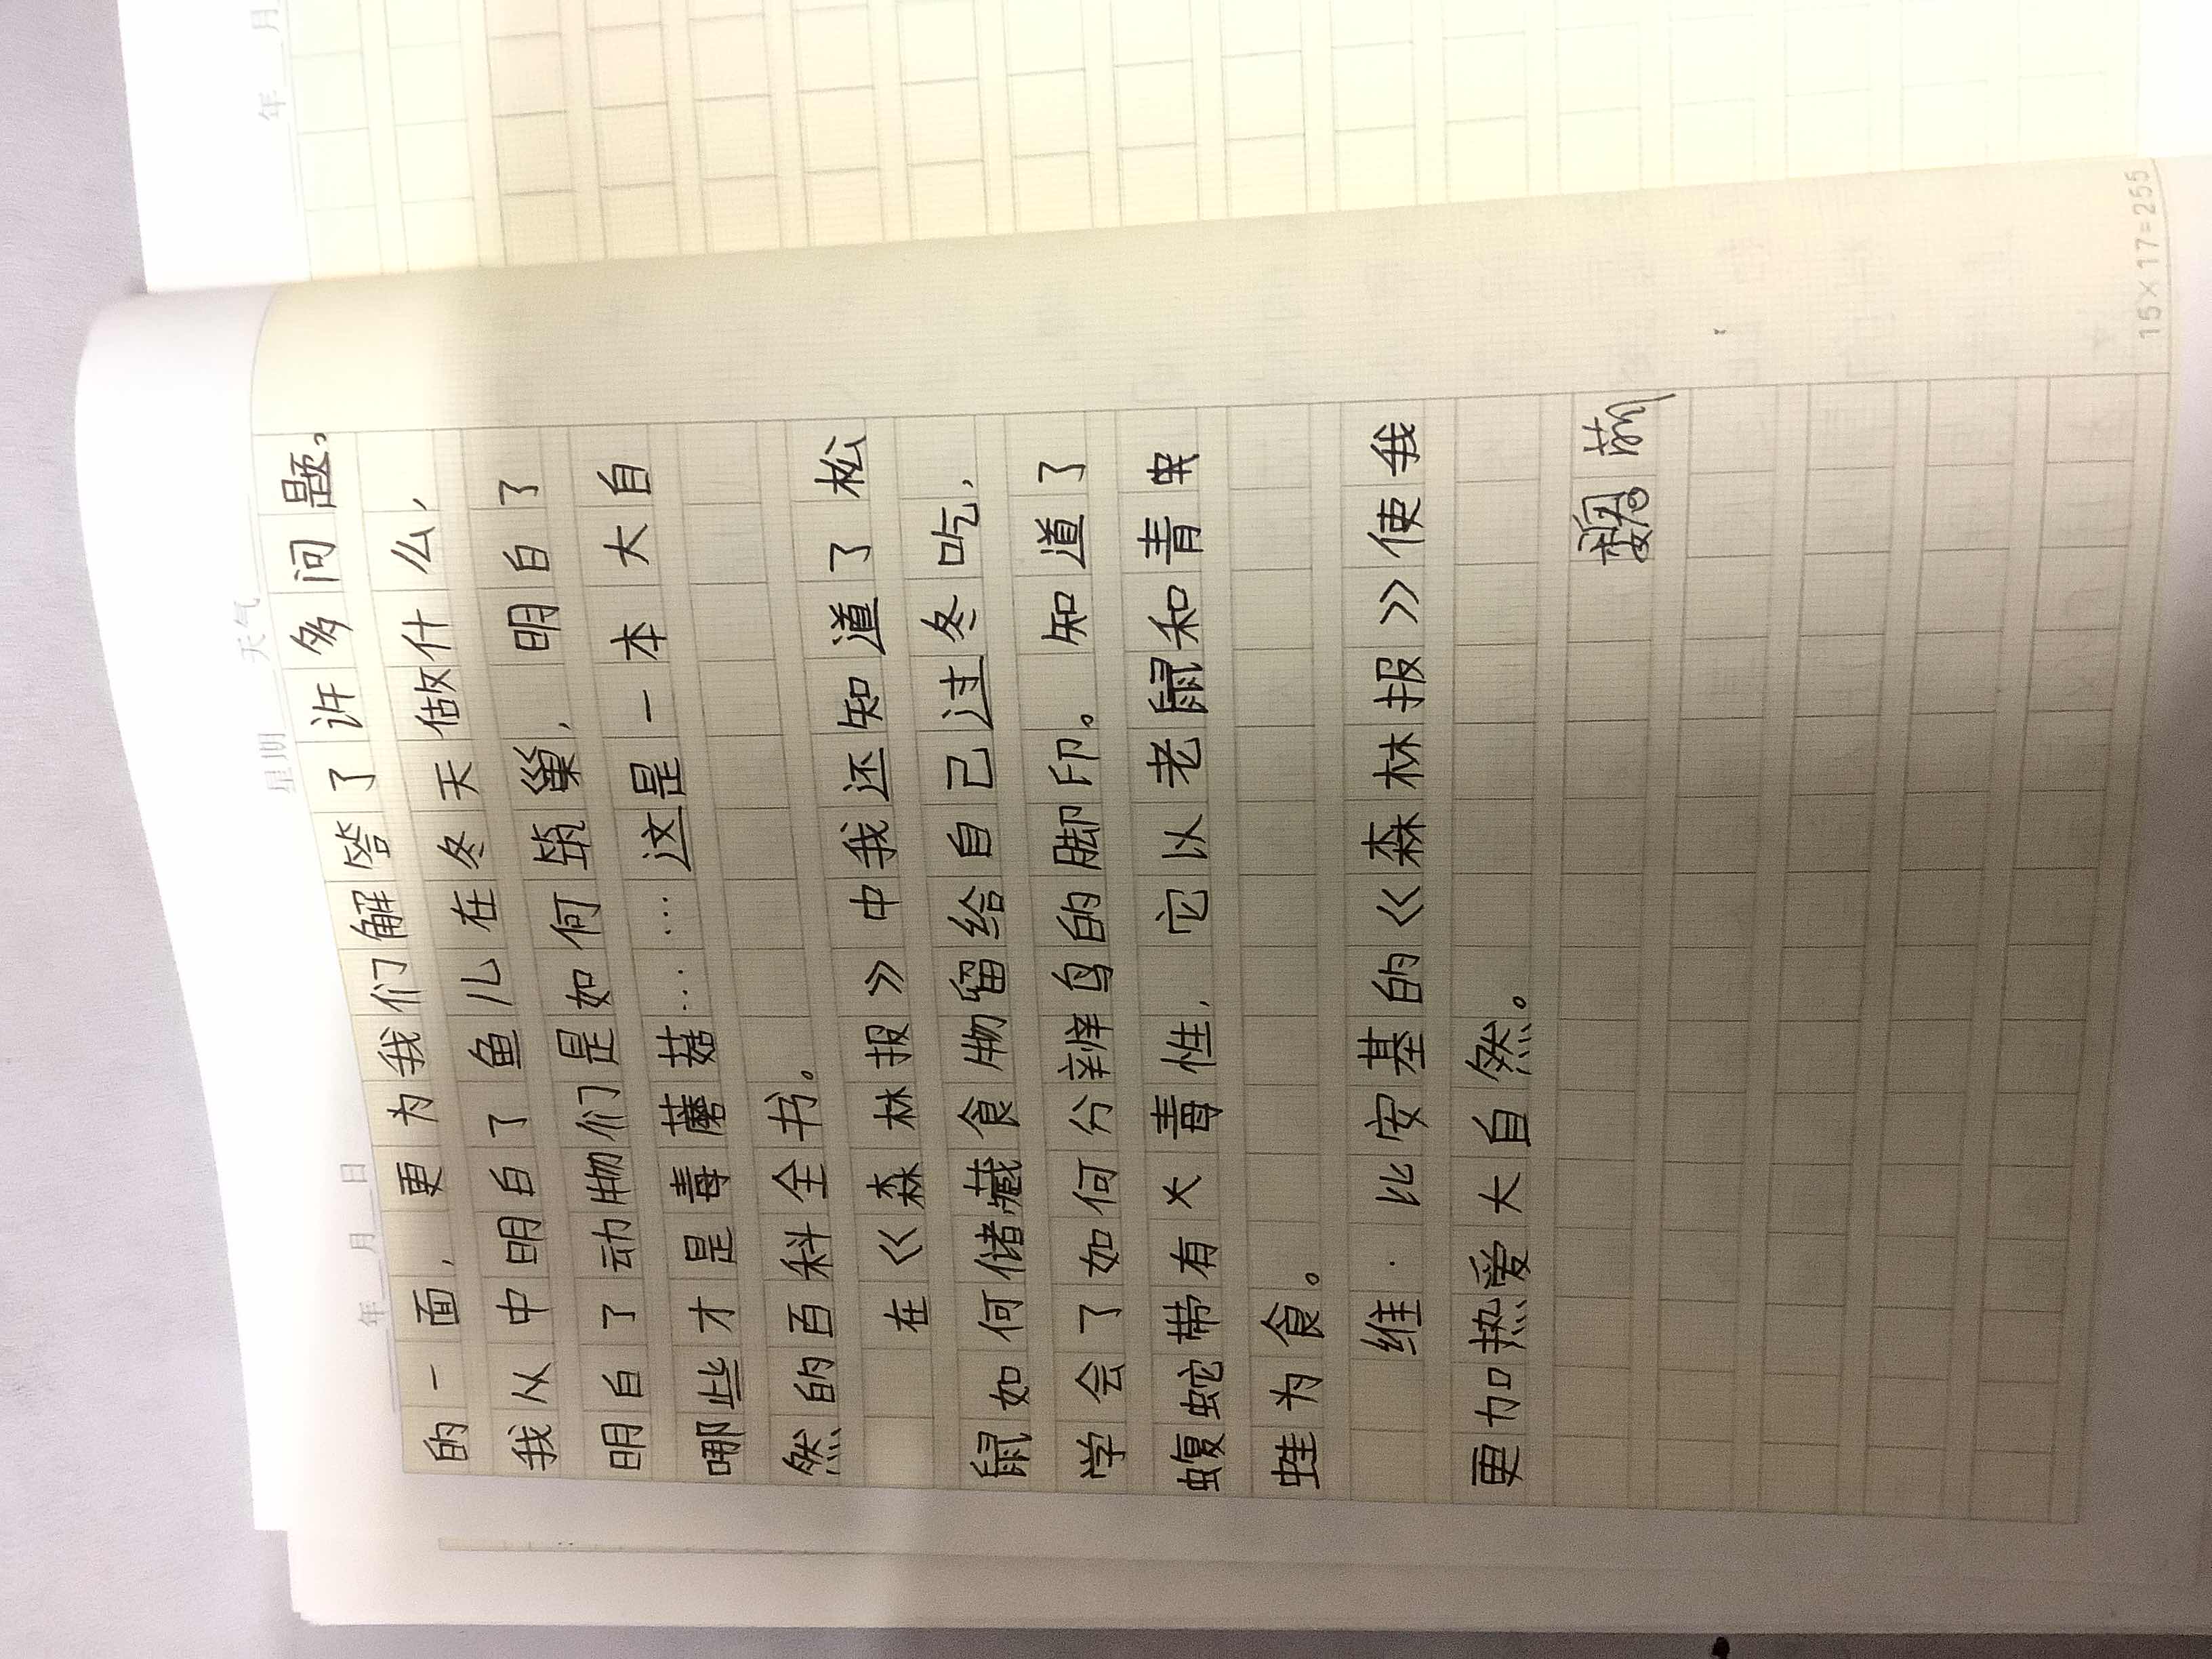 年 月 日 星期 天气
的一面，更为我们解答了许多问题。
我从中明白了鱼儿在冬天做什么，
明白了动物们是如何筑巢，明白了
哪些才是毒蘑菇……这是一本大自
然的百科全书。
在《森林报》中我还知道了松
鼠如何储藏食物留给自己过冬吃，
学会了如何分辨鸟的脚印。知道了
蝮蛇带有大毒性，它以老鼠和青
蛙为食。
维·比安基的《森林报》使我
更加热爱大自然。
15×17=255
年 月